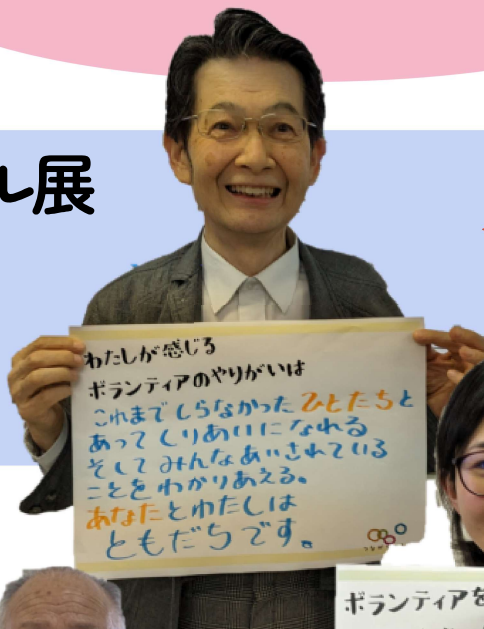 ル展
わたしが感じる
ボランティアのやりがいは
これまでしらなかったひとたちと
あってしりあいになれる
そしてみんなあいされている
ことをわかりあえる。
あなたとわたしは
ともだちです。
ボランティアを